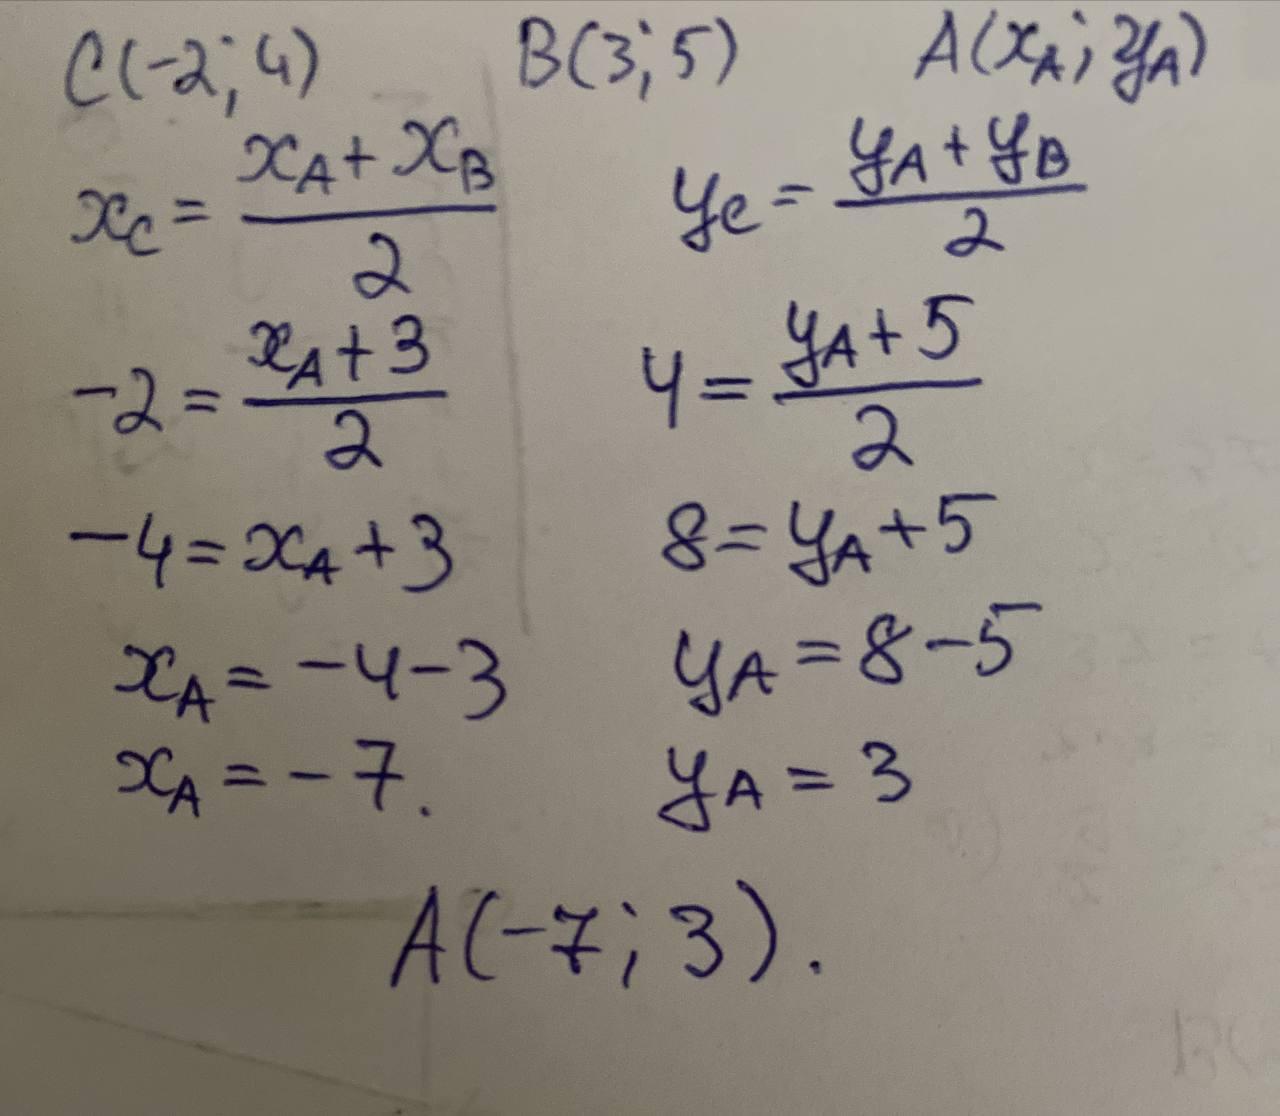 C(-2; 4) B(3; 5) A(x_A; y_A)
x_C = (x_A + x_B)/2 y_C = (y_A + y_B)/2
-2 = (x_A + 3)/2 4 = (y_A + 5)/2
-4 = x_A + 3 8 = y_A + 5
x_A = -4 - 3 y_A = 8 - 5
x_A = -7. y_A = 3
A(-7; 3).